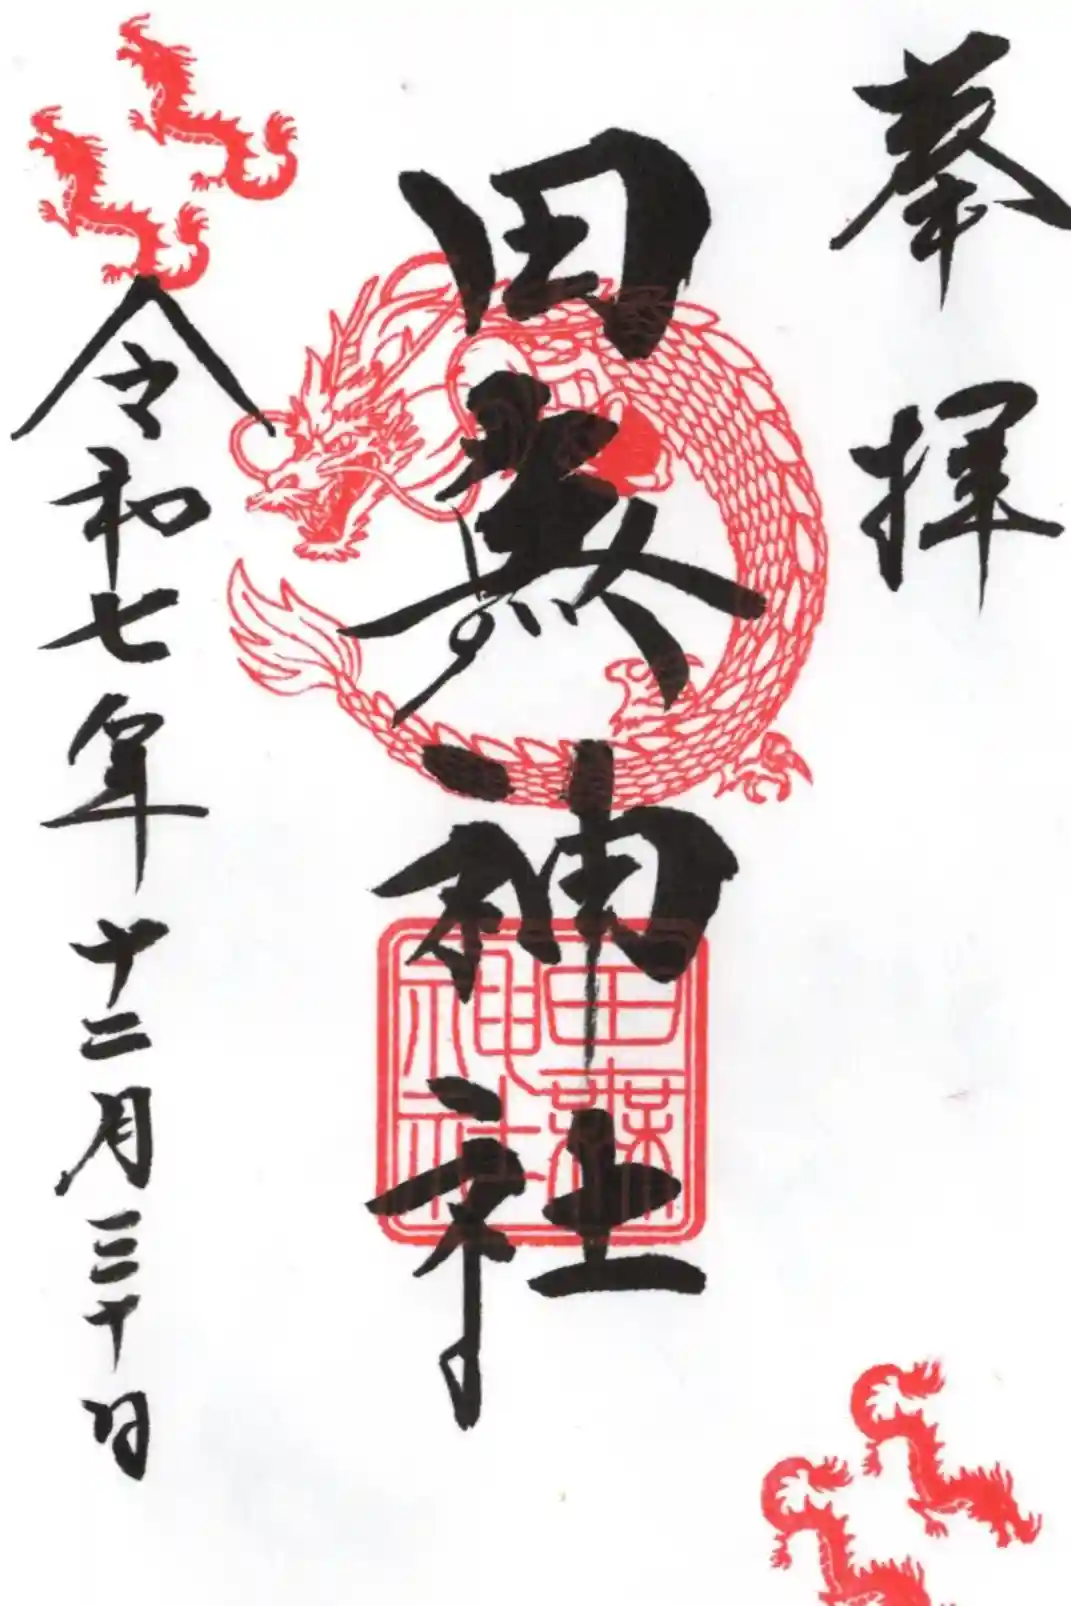 奉拝
田無神社
田無神社
令和七年十二月三十日